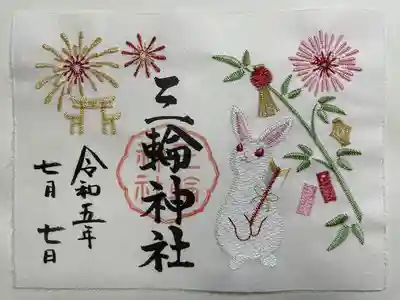 三輪神社
令和五年
七月七日